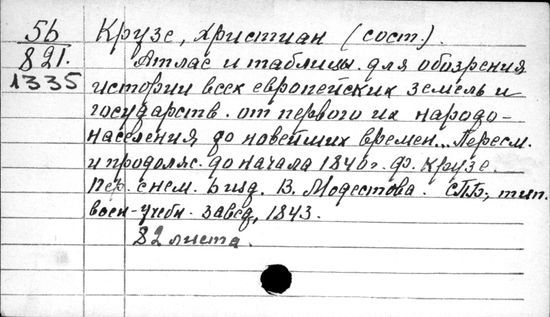 5б Крузе, Христиан (сост.).
821. Атлас и таблицы для обозрения
1335 истории всех европейских земель и
государств от первого их народо-
населения до новейших времен... Пересм.
и продолж. до начала 1840 г. Ф. Крузе.
Пер. с нем. Визд. В. Модестова. СПБ, тип.
воен-учебн. завед, 1843.
82 листа.